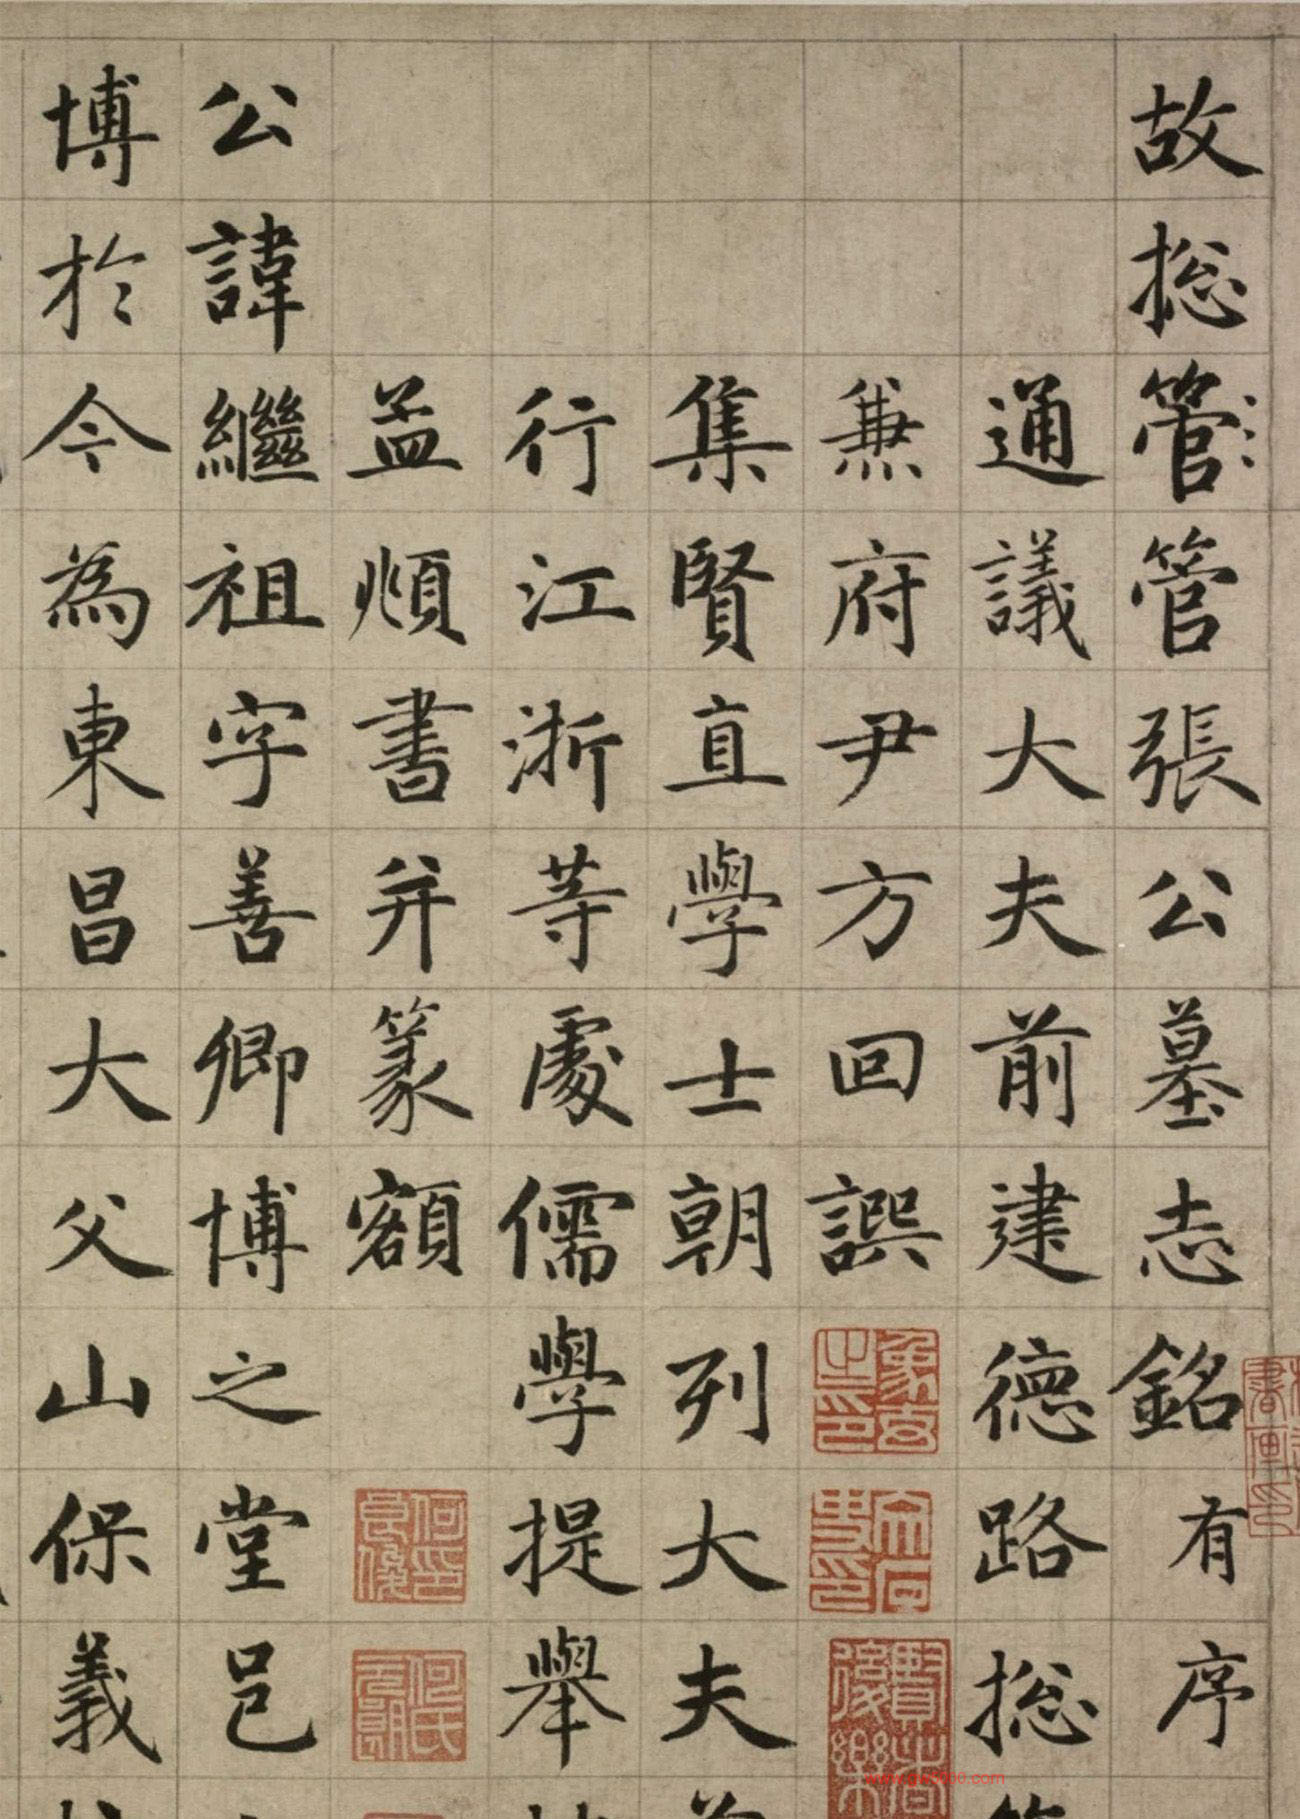 故揔管管張公墓志銘有序
通議大夫前建德路揔
兼府尹方回譔
集賢直學士朝列大夫
行江浙等處儒學提舉
孟頫書并篆額
公諱繼祖字善卿博之堂邑
博於今為東昌大父山保義
何氏元朗
www.gt5000.com